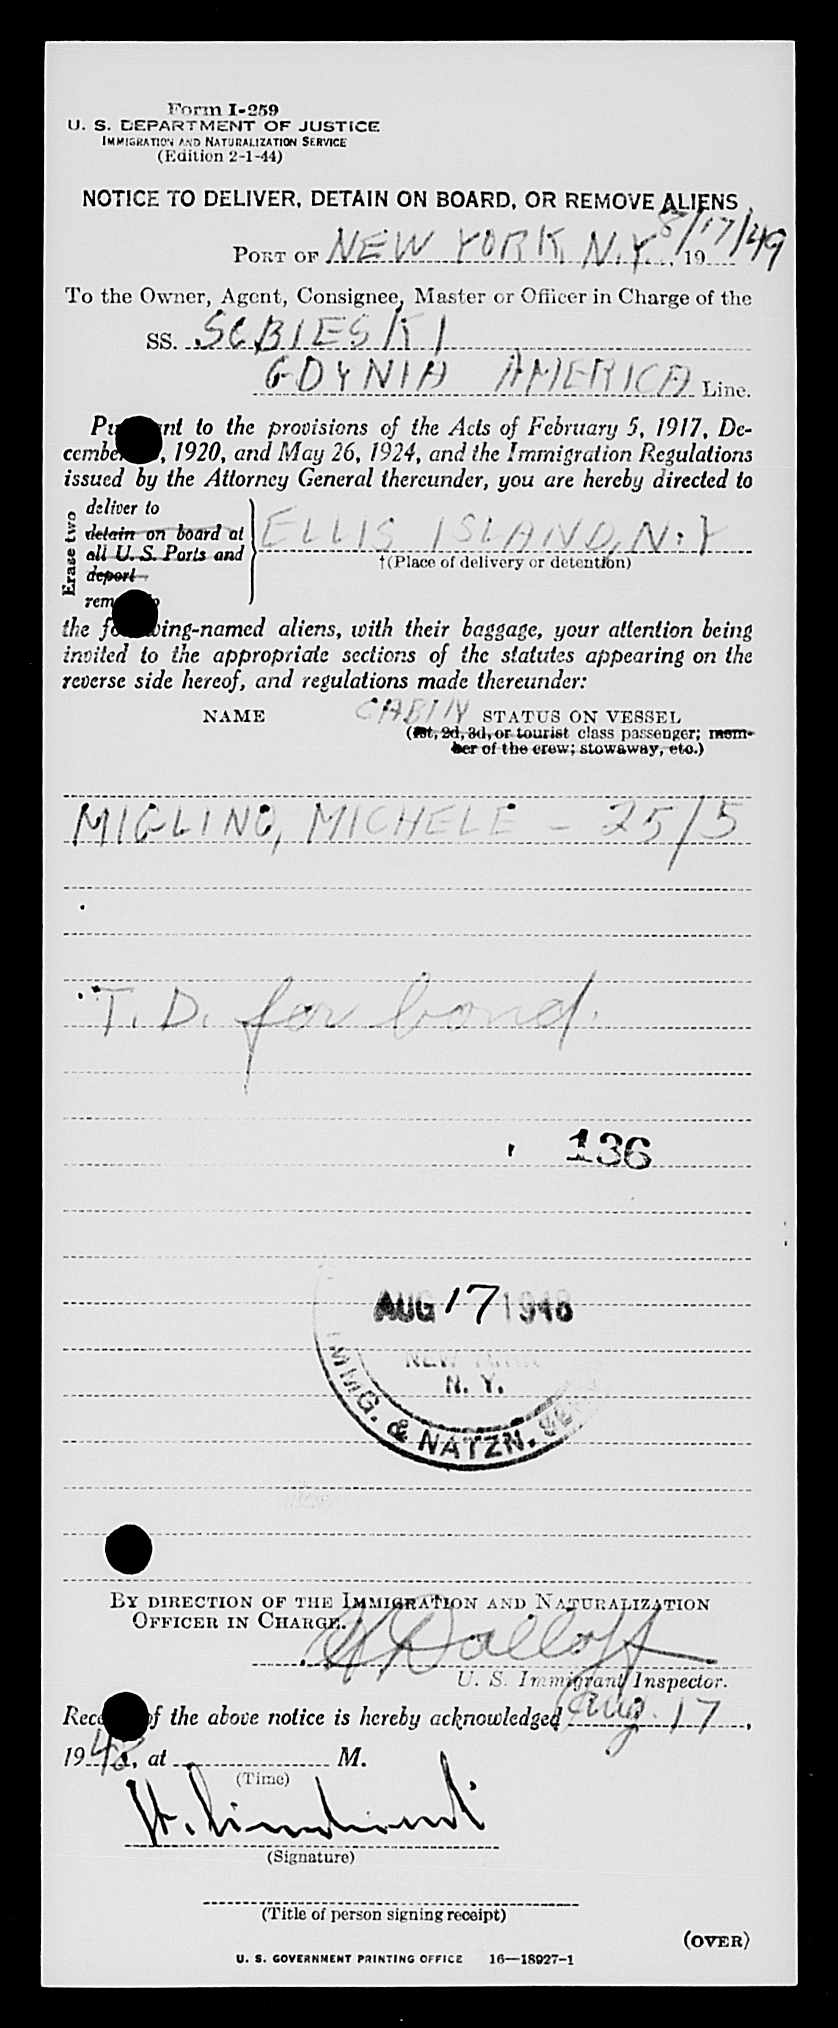 Form I-259
U. S. DEPARTMENT OF JUSTICE
IMMIGRATION AND NATURALIZATION SERVICE
(Edition 2-1-44)
NOTICE TO DELIVER, DETAIN ON BOARD, OR REMOVE ALIENS
8/17/49
PORT OF NEW YORK N.Y., 19
To the Owner, Agent, Consignee, Master or Officer in Charge of the
SS. SOBIESKI
GDYNIA AMERICA Line.
Pu nt to the provisions of the Acts of February 5, 1917, De-
cembe , 1920, and May 26, 1924, and the Immigration Regulations
issued by the Attorney General thereunder, you are hereby directed to
Erase two
deliver to
detain on board at
all U. S. Ports and
deport
rem o
ELLIS ISLAND, N.Y
†(Place of delivery or detention)
the fo wing-named aliens, with their baggage, your attention being
invited to the appropriate sections of the statutes appearing on the
reverse side hereof, and regulations made thereunder:
NAME CABIN STATUS ON VESSEL
(1st, 2d, 3d, or tourist class passenger; mem-
ber of the crew; stowaway, etc.)
MIGLINO, MICHELE - 25/5
T. D. for bond.
136
AUG 17 1948
NEW YORK
N. Y.
IMMG. & NATZN. SE
BY DIRECTION OF THE IMMIGRATION AND NATURALIZATION
OFFICER IN CHARGE.
U. S. Immigrant Inspector.
Rece f the above notice is hereby acknowledged Aug. 17,
1948, at M.
(Time)
(Signature)
(Title of person signing receipt)
(OVER)
U. S. GOVERNMENT PRINTING OFFICE 16—18927-1